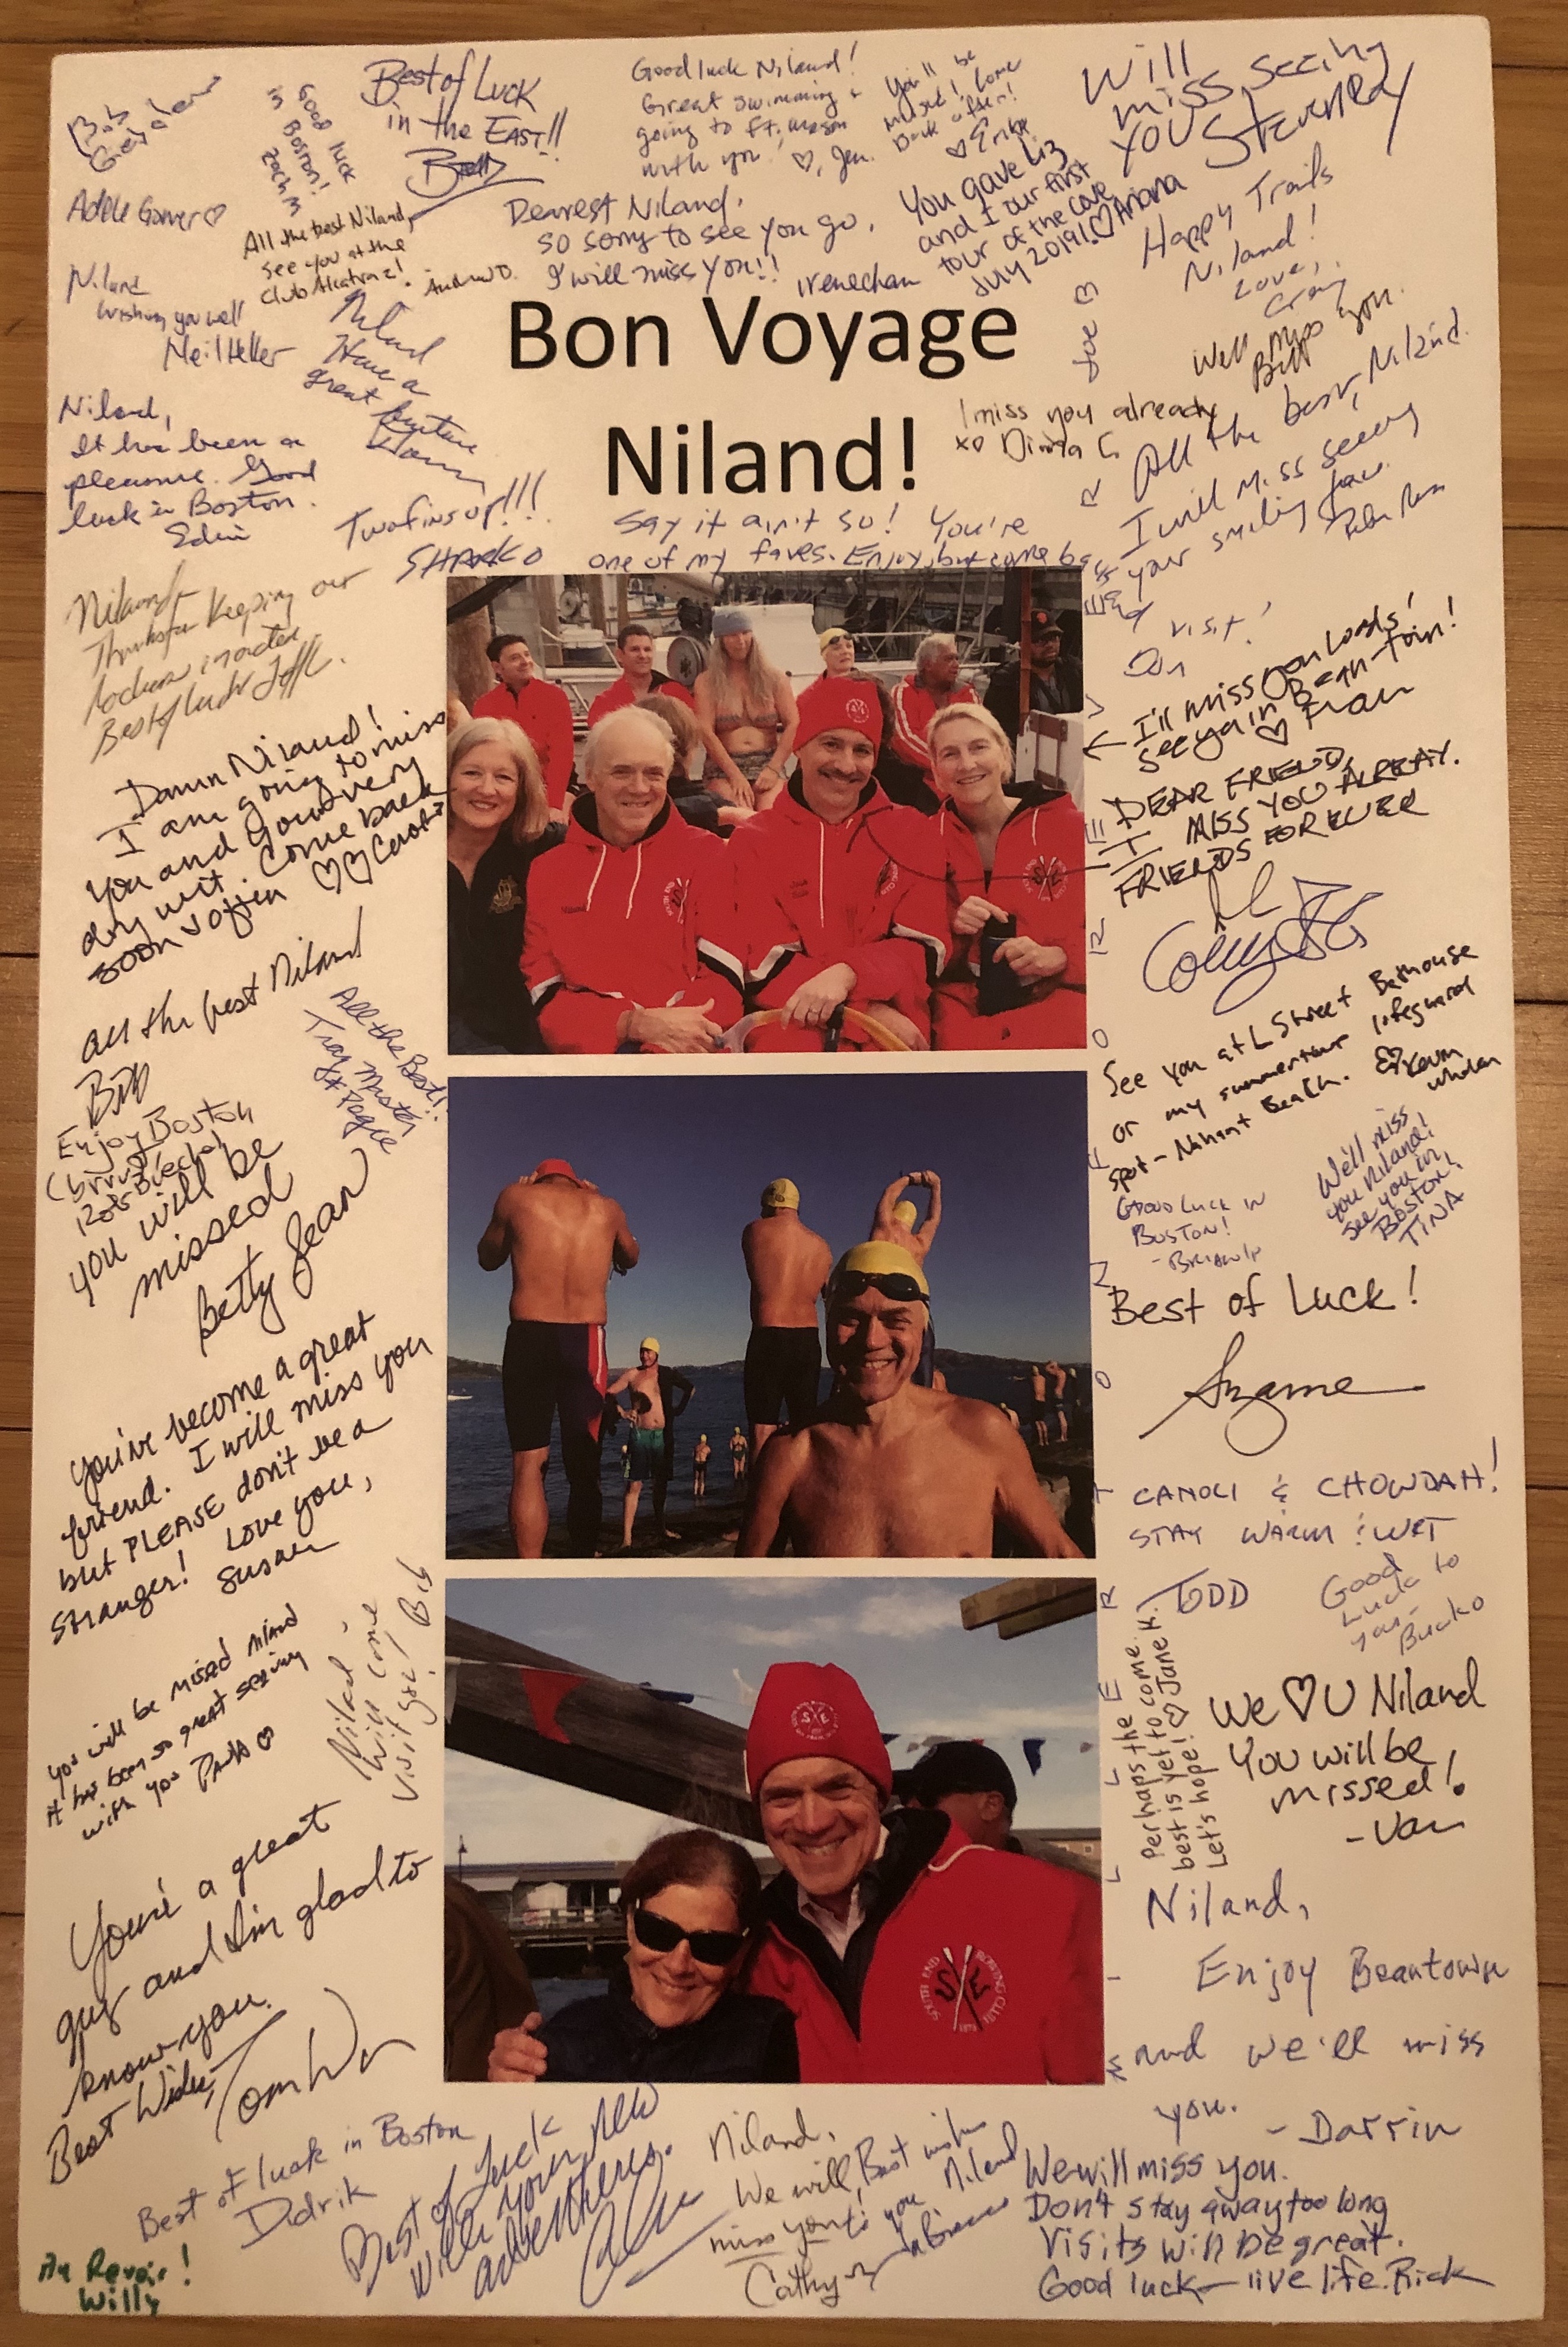 Bob
Good luck
in Boston!
Zach M
Best of Luck
in the EAST!!
Good luck Niland!
Great swimming &
going to Ft. Mason
with you!
♡, Jen.
You'll be
missed! Come
back often!
♡ Erika
Will
miss seeing
you
Adele Gower ♡
All the best Niland,
See you at the
Club Alcatraz!
Andrew D.
Dearest Niland,
So sorry to see you go.
I will miss you!!
irenechan
You gave Liz
and I our first
tour of the cove
July 2019! ♡ Ariana
Happy Trails
Niland!
Love,
Craig
Niland
Wishing you well
Neil Heller
Niland
Have a
great future
Bon Voyage
Niland!
Joe ♡
We'll miss you.
Bill
I miss you already
xo Dinta C.
All the best, Niland.
Niland,
It has been a
pleasure. Good
luck in Boston.
Edin
Two fins up!!!
SHARKO
Say it ain't so! You're
one of my faves. Enjoy, but come back
& visit!
Dan
I will miss seeing
your smiling face.
Niland
Thanks for keeping our
Best of luck Jeff
I'll miss you loads!
See ya in Bean-Town!
♡ Fran
Damn Niland!
I am going to miss
you and your very
dry wit. Come back
soon & often ♡♡ Carol
DEAR FRIEND,
I MISS YOU ALREAY.
FRIENDS FOREVER
SOUTH END ROWING CLUB
S E
All the best Niland
Bip
All the Best!!
Tray Master
Pogue
See you at L Street Bathouse
or my summertour lifeguard
spot - Nahant Beach. ♡ Kevin
Whalen
Enjoy Boston
(brrr!)
Rob
you will be
missed
Betty Jean
Good luck in
Boston!
- Brian
We'll miss
you Niland!
See you in
Boston!
TINA
Best of Luck!
Suzanne
You've become a great
friend. I will miss you
but PLEASE don't be a
stranger! Love you,
Susan
CANOLI & CHOWDAH!
STAY WARM & WET
TODD
Good
Luck to
you -
Bucko
you will be missed Niland
it has been so great seeing
with you Paula ♡
Niland -
Will come
visit you! Bib
Perhaps the
best is yet to come.
Let's hope! ♡ Jane K.
We ♡ U Niland
You will be
missed!
- Van
You're a great
guy and I'm glad to
know you.
Best Wishes
Tom
SOUTH END ROWING CLUB
S E
1873
Niland,
Enjoy Beantown
and we'll miss
you.
- Darrin
Best of luck in Boston
Didrik
Best of Luck
with your new
adventures.
Niland,
We will
miss you!
Cathy
Best wishes
Niland
We will miss you.
Don't stay away too long
Visits will be great.
Good luck - live life. Rick
Au Revoir!
Willy